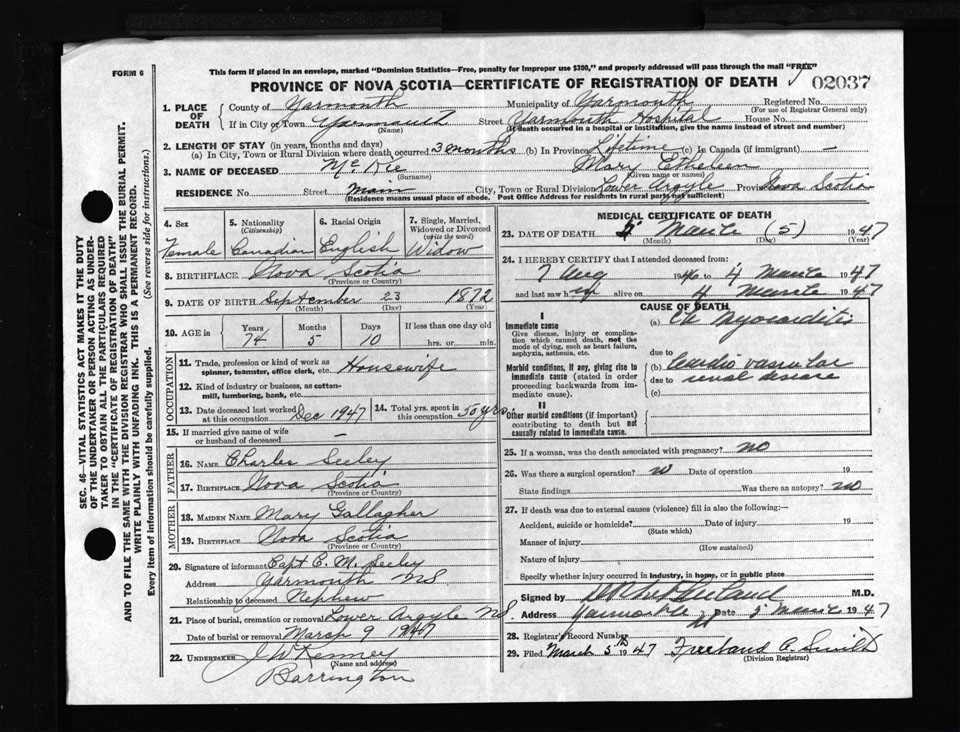 FORM 6
This form if placed in an envelope, marked "Dominion Statistics—Free, penalty for improper use $300," and properly addressed will pass through the mail "FREE"
PROVINCE OF NOVA SCOTIA—CERTIFICATE OF REGISTRATION OF DEATH
02037
1. PLACE OF DEATH County of Yarmouth Municipality of Yarmouth Registered No.
(For use of Registrar General only)
If in City or Town Yarmouth Street Yarmouth Hospital House No.
(Name) (If death occurred in a hospital or institution, give the name instead of street and number)
2. LENGTH OF STAY (in years, months and days)
(a) In City, Town or Rural Division where death occurred 3 months (b) In Province Lifetime (c) In Canada (if immigrant) —
3. NAME OF DECEASED McKie Mary Etheleen
(Surname) (Given name or names)
RESIDENCE No. Street Main City, Town or Rural Division Lower Argyle Province Nova Scotia
(Residence means usual place of abode. Post Office Address for residents in rural parts not sufficient)
4. Sex 5. Nationality 6. Racial Origin 7. Single, Married, Widowed or Divorced
(Citizenship) (write the word)
Female Canadian English Widow
8. BIRTHPLACE Nova Scotia
(Province or Country)
9. DATE OF BIRTH September 23 1872
(Month) (Day) (Year)
10. AGE in Years Months Days If less than one day old
74 5 10 hrs. or min.
OCCUPATION
11. Trade, profession or kind of work as spinner, teamster, office clerk, etc. Housewife
12. Kind of industry or business, as cotton-mill, lumbering, bank, etc.
13. Date deceased last worked at this occupation Dec 1947 14. Total yrs. spent in this occupation 50 yrs.
15. If married give name of wife or husband of deceased —
FATHER
16. NAME Charles Seeley
17. BIRTHPLACE Nova Scotia
(Province or Country)
MOTHER
18. MAIDEN NAME Mary Gallagher
19. BIRTHPLACE Nova Scotia
(Province or Country)
20. Signature of informant Capt E. M. Seeley
Address Yarmouth NS
Relationship to deceased Nephew
21. Place of burial, cremation or removal Lower Argyle NS
Date of burial or removal March 9 1947
22. UNDERTAKER J W Kenney
(Name and address)
Barrington
MEDICAL CERTIFICATE OF DEATH
23. DATE OF DEATH 5 March (5) 1947
(Month) (Day) (Year)
24. I HEREBY CERTIFY that I attended deceased from:
7 Aug 1946 to 4 March 1947
and last saw h alive on 4 March 1947
CAUSE OF DEATH
I
Immediate cause (a) Ch Myocarditis
Give disease, injury or complication which caused death, not the mode of dying, such as heart failure, asphyxia, asthenia, etc.
due to
Morbid conditions, if any, giving rise to immediate cause (stated in order proceeding backwards from immediate cause).
(b) Cardio vascular
due to renal disease
(c)
II
Other morbid conditions (if important) contributing to death but not causally related to immediate cause.
25. If a woman, was the death associated with pregnancy? no
26. Was there a surgical operation? no Date of operation 19
State findings Was there an autopsy? no
27. If death was due to external causes (violence) fill in also the following:—
Accident, suicide or homicide? Date of injury 19
(State which)
Manner of injury
(How sustained)
Nature of injury
Specify whether injury occurred in industry, in home, or in public place
Signed by M.D.
Address Yarmouth NS Date 5 March 1947
28. Registrar's Record Number
29. Filed March 5th 1947 Freeland A. Smith
(Division Registrar)
SEC. 46—VITAL STATISTICS ACT MAKES IT THE DUTY
OF THE UNDERTAKER OR PERSON ACTING AS UNDER-
TAKER TO OBTAIN ALL THE PARTICULARS REQUIRED
IN THE "CERTIFICATE OF REGISTRATION OF DEATH"
AND TO FILE THE SAME WITH THE DIVISION REGISTRAR WHO SHALL ISSUE THE BURIAL PERMIT.
WRITE PLAINLY WITH UNFADING INK. THIS IS A PERMANENT RECORD.
Every item of information should be carefully supplied. (See reverse side for instructions.)